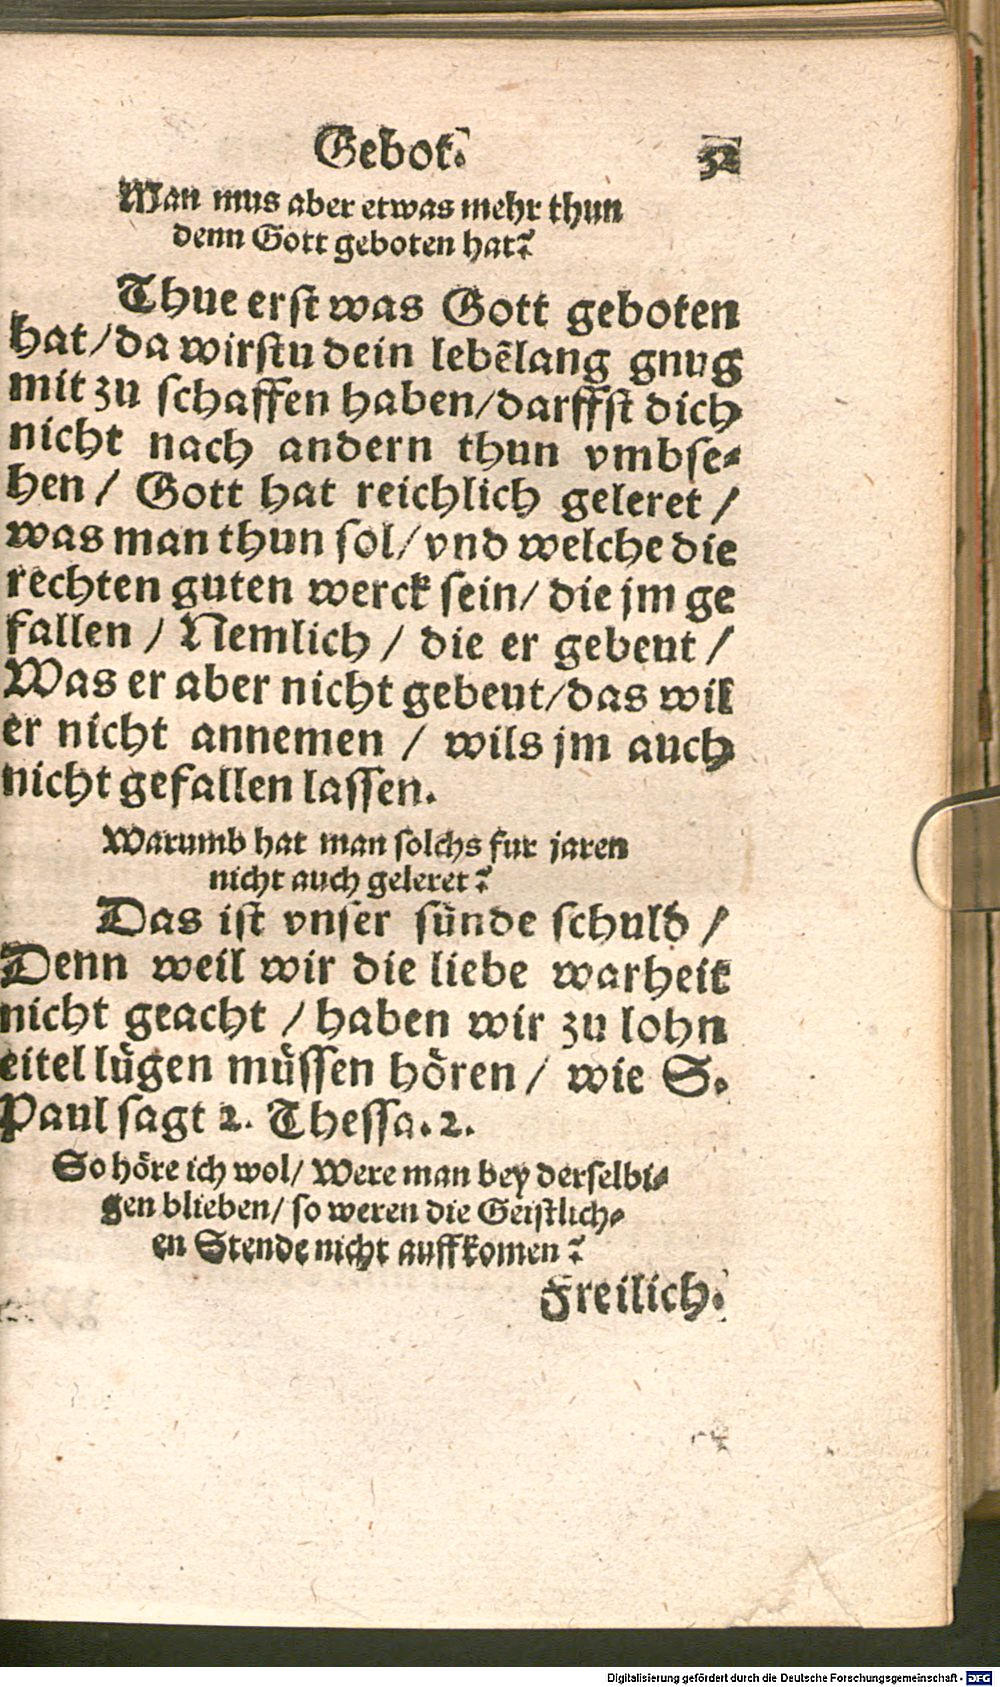 Gebot. 52
Man mus aber etwas mehr thun
denn Gott geboten hat?
Thue erst was Gott geboten
hat/da wirstu dein lebẽlang gnug
mit zu schaffen haben/darffst dich
nicht nach andern thun vmbse-
hen / Gott hat reichlich geleret /
was man thun sol/vnd welche die
rechten guten werck sein/ die jm ge
fallen / Nemlich / die er gebeut /
Was er aber nicht gebeut/das wil
er nicht annemen / wils jm auch
nicht gefallen lassen.
Warumb hat man solchs fur jaren
nicht auch geleret?
Das ist vnser sünde schuld /
Denn weil wir die liebe warheit
nicht geacht / haben wir zu lohn
eitel lügen müssen hören / wie S.
Paul sagt 2. Thessa. 2.
So höre ich wol/ Were man bey derselbi-
gen blieben/ so weren die Geistlich-
en Stende nicht auffkomen?
Freilich.
Digitalisierung gefördert durch die Deutsche Forschungsgemeinschaft - DFG